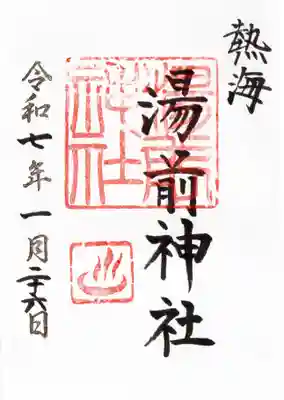 熱海
湯前神社
令和七年一月二十六日
湯前
神社